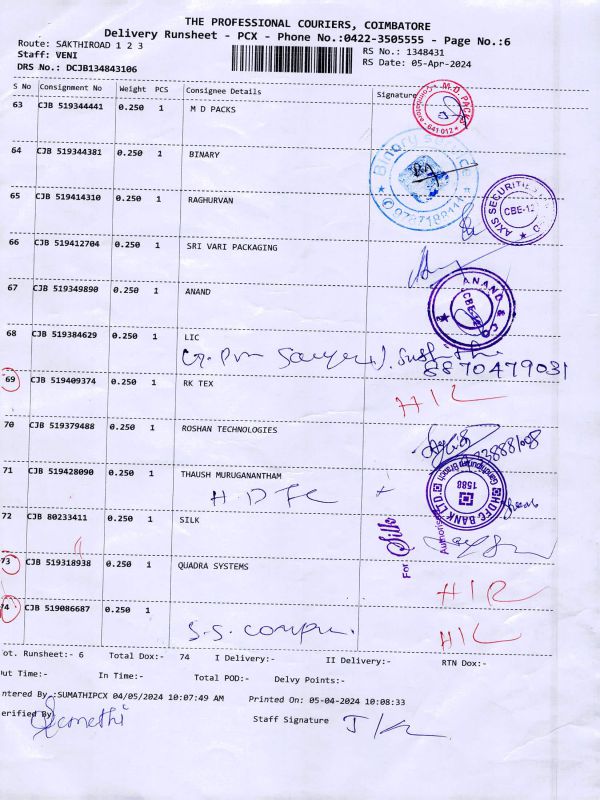 THE PROFESSIONAL COURIERS, COIMBATORE
Delivery Runsheet - PCX - Phone No.:0422-3505555 - Page No.:6
Route: SAKTHIROAD 1 2 3
RS No.: 1348431
Staff: VENI
RS Date: 05-Apr-2024
DRS No.: DCJB134843106
S No Consignment No Weight PCS Consignee Details Signature
63 CJB 519344441 0.250 1 M D PACKS
M.D PACKS Coimbatore - 641 012
64 CJB 519344381 0.250 1 BINARY
Binary
65 CJB 519414310 0.250 1 RAGHURVAN
AXIS SECURITIES
CBE-12
66 CJB 519412704 0.250 1 SRI VARI PACKAGING
67 CJB 519349890 0.250 1 ANAND
ANAND & CO
CBE
68 CJB 519384629 0.250 1 LIC
8870479031
69 CJB 519409374 0.250 1 RK TEX
70 CJB 519379488 0.250 1 ROSHAN TECHNOLOGIES
71 CJB 519428090 0.250 1 THAUSH MURUGANANTHAM
H.D.F.C
HDFC BANK LTD Gandhipuram Branch
1588
72 CJB 80233411 0.250 1 SILK
For Silk
73 CJB 519318938 0.250 1 QUADRA SYSTEMS
74 CJB 519086687 0.250 1
S.S. Compu.
ot. Runsheet:- 6 Total Dox:- 74 I Delivery:- II Delivery:- RTN Dox:-
ut Time:- In Time:- Total POD:- Delvy Points:-
ntered By :SUMATHIPCX 04/05/2024 10:07:49 AM Printed On: 05-04-2024 10:08:33
erified By
Staff Signature